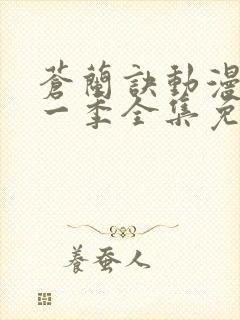 蒼蘭訣動漫
一季全集免
養蚕人